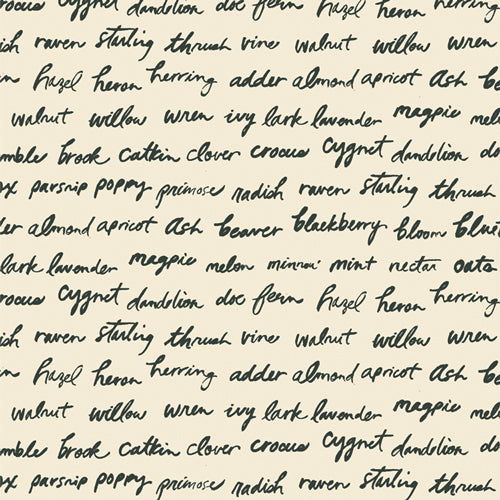 crocus cygnet dandelion doe fern hazel heron herring
radish raven starling thrush vine walnut willow wren
hazel heron herring adder almond apricot ash
walnut willow wren ivy lark lavender magpie
brook catkin clover crocus cygnet dandelion
parsnip poppy primose radish raven starling thrush
adder almond apricot ash beaver blackberry bloom
lark lavender magpie melon minnow mint nectar oats
crocus cygnet dandelion doe fern hazel heron herring
radish raven starling thrush vine walnut willow wren
hazel heron herring adder almond apricot ash
walnut willow wren ivy lark lavender magpie
brook catkin clover crocus cygnet dandelion
parsnip poppy primose radish raven starling thrush